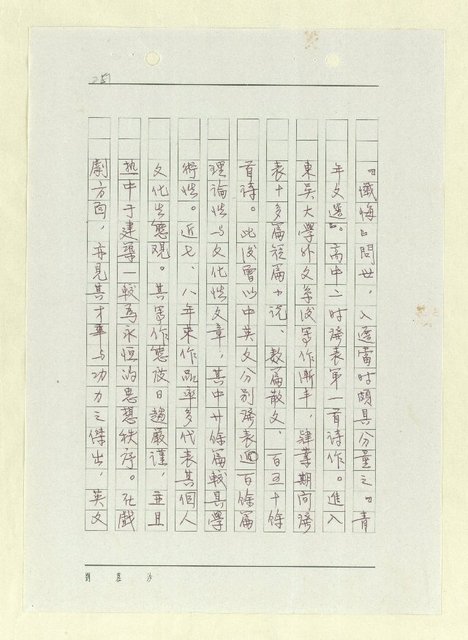 『懺悔』問世，入選當时頗具分量之『青
年文選』。高中二时發表第一首诗作。進入
東吳大學外文系後寫作漸丰，肄業期间發
表十多篇短篇小说、数篇散文、百五十餘
首诗。此後曾以中英文分别發表過百餘篇
理論性与文化性文章，其中廿餘篇較具學
術性。近七、八年来作品率多代表其個人
文化生態观。其寫作態度日趨嚴謹，並且
热中于建築一較為永恒的思想秩序。在戲
劇方面，亦見其才華与功力之傑出，英文
劉 慕 沙